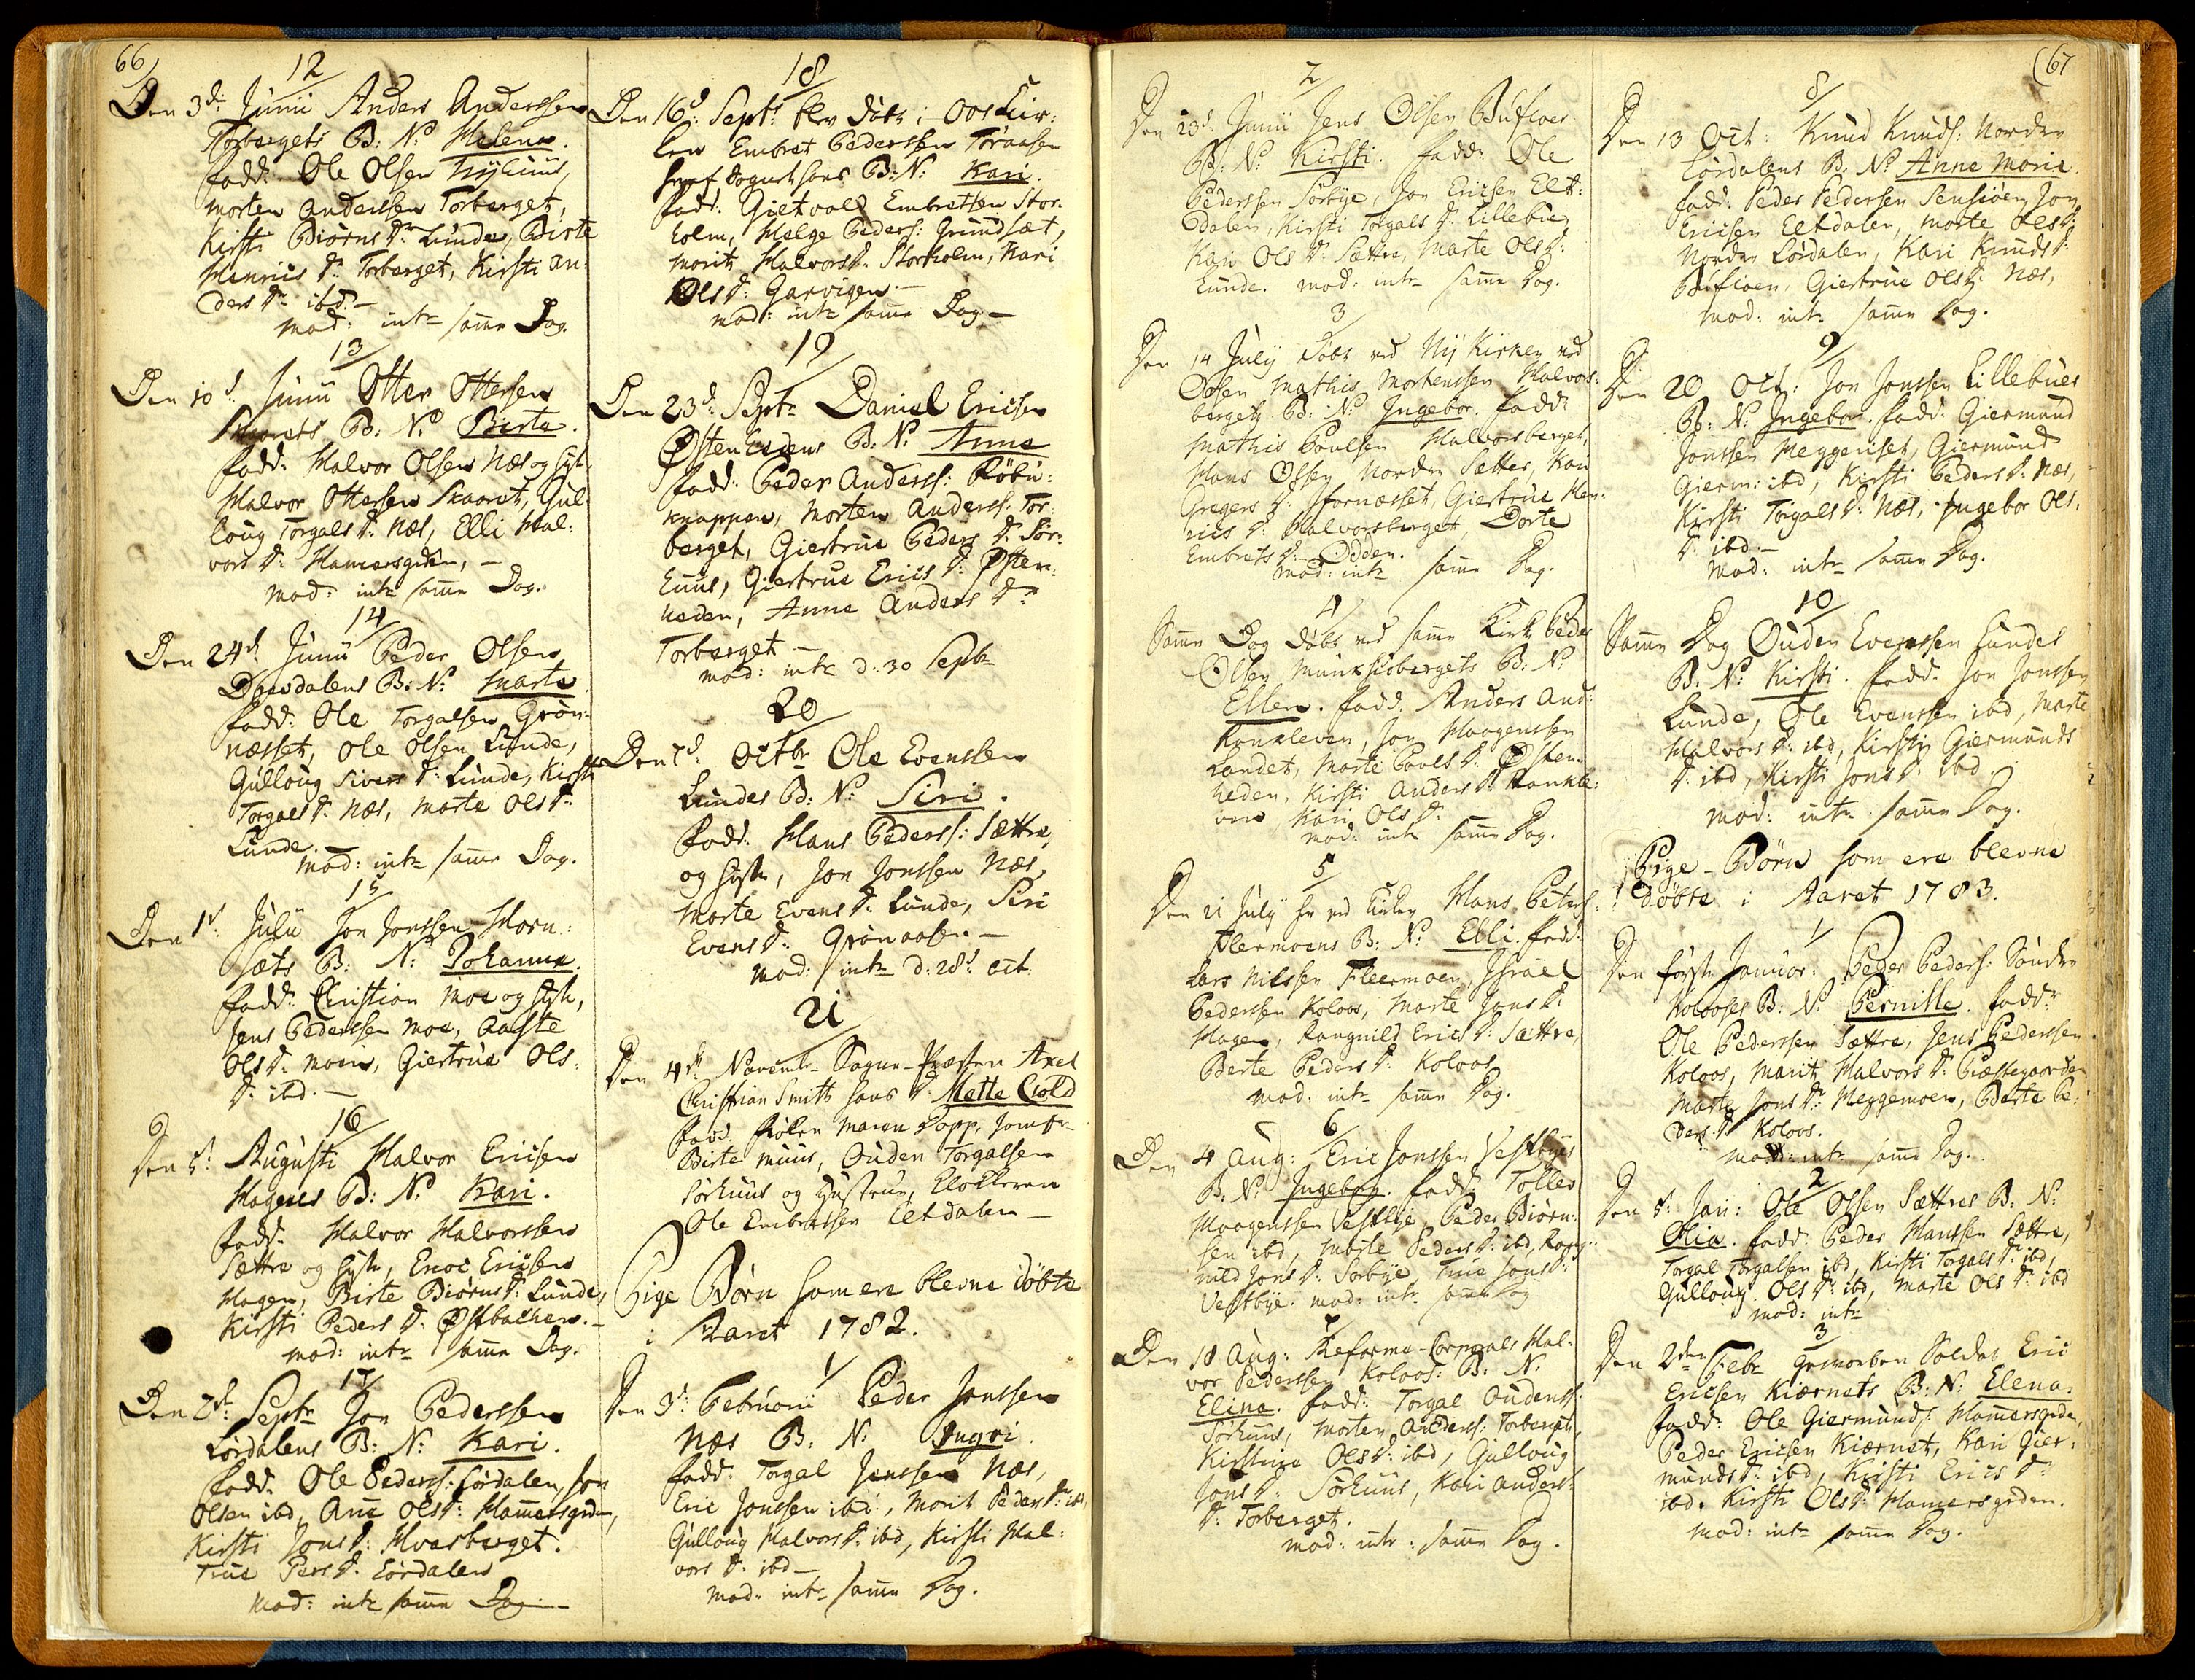 66)
12
Den 3d: Junii Anders Anderssen
Torbergets B: N: Helena.
fadd: Ole Olsen Nyhuus,
Morten Anderssen Torberget,
Kirsti Biörns dr: Lunde, Birte
Henrics dr: Torberget, Kirsti An:
ders dr: ibd. —
mod: intr: samme Dag.
13
Den 10 d: Junii Otter Ottersen
Skaarets B: N: Birte.
fadd: Halvor Olsen Næs og Hust:
Halvor Ottersen Skaaret, Gul:
loug Torgals dr: Næs, Elli Hal:
vors dr: Hamersgrden, —
mod: intr: samme Dag.
14
Den 24d: Junii Peder Olsen
Drevdalens B: N: Marte
fadd: Ole Torgalsen Grön:
næsset, Ole Olsen Lunde,
Gulloug Sivers dr: Lunde, Kirsti
Torgals dr: Næs, Marte Ols dr:
Lunde.
mod: intr: samme Dag.
15
Den 1d: Julii Jon Jonssen Morn:
sæts B: N: Johanna.
fadd: Christian Moe og Hust,
Jens Pederssen Moe, Aaste
Ols dr: Moen, Giertrue Ols:
dr: ibd. —
16
Den 5: Augusti Halvor Ericsen
Hagens B: N: Kari.
fadd: Halvor Halvorssen
Sættre og Hust:, Enoc Ericsen
Hagen, Birte Biörns dr: Lunde,
Kirsti Peders dr: Östbachen. —
mod: intr: samme Dag.
17
Den 2d: Septr: Jon Pederssen
Lördalens B: N: Kari.
fadd: Ole Peders: Lördalen, Jon
Olsen ibd, Anne Ols dr: Hamersgrden,
Kirsti Jons dr: Hvarberget.
True Pers dr: Lördalen
mod: intr: samme Dag —
18
Den 16d: Septr: blev döbt i Oos Kir:
ken Embret Pederssen Töraasen
B: N: Kari.
fadd: Gietvold Embretsen Stor:
holm, Helge Peders: Grundsæt,
Morit Halvors dr: Storholm, Kari
Ols dr: Garvigen. —
mod: intr: samme Dag —
19
Den 23d: Septr: Daniel Ericsen
Östenhedens B: N: Anne
fadd: Peder Anderss: Röbu:
knappen, Morten Anderss: Tor
berget, Giertrue Peders dr: Sör:
huus, Giertrue Erics dr: Östen:
heden, Anne Anders dr:
Torberget —
mod: intr: d: 30 Septr:
20
Den 7d: Octbr: Ole Evenssen
Lundes B: N: Siri.
fadd: Hans Peders: Sættre,
og Hust:, Jon Jonssen Næs,
Marte Evens dr: Lunde, Siri
Evens dr: Grönaaln. —
mod: intr: d: 28d: Oct.
21
Den 4d: Novembr: Sogne-Præsten Axel
Christian Smith hans dr: Mette Cold
fadd: Fröken Maren Popp, Jomfr
Birte Muus, Ouden Torgalsen
Sörhuus og Hustrue, Klokkeren
Ole Embretsen Eltdalen —
Pige Börn som ere blevne döbte
i Aaret 1782.
1
Den 3d: Februarii Peder Jonssen
Næs B: N: Ingri.
fadd: Torgal Jonssen Næs,
Eric Jonssen ibd, Marit Peders dr: ibd
Gulloug Halvors dr: ibd, Kirsti Hal:
vors dr: ibd —
mod: intr: samme Dag.
(67
2
Den 23d: Junii Jens Olsen Bufloes
B: N: Kirsti. fadd: Ole
Pederssen Sörbye, Jon Ericsen Elt:
dalen, Kirsti Torgals dr: Lillebue,
Kari Ols dr: Sættre, Marte Ols dr:
Lunde. mod: intr: samme Dag.
3
Den 14 July döbt ved Ny Kirken ved
Osen Mathis Mortenssen Halvors:
bergets B: N: Ingebor. fadd:
Mathis Poulsen Halvorsberget,
Hans Olsen Nordre Sætter, Kari
Gregers dr: Fornæsset, Giertrue Hen:
rics dr: Halvorsberget, Dorte
Embrets dr: Odden.
mod: intr: samme Dag.
4
Samme Dag döbt ved samme Kirke Peder
Olsen Munksiöbergets B: N:
Ellen. fadd: Anders And:
Rankleven, Jon Haagenssen
Landet, Marte Povels dr: Östen:
heden, Kirsti Anders dr: Rankle:
ven Kari Ols dr:
mod: intr: samme Dag.
5
Den 21 July her ved Kirken Hans Peters:
Flermoens B: N: Elli. fadd:
Lars Nilssen Fleermoen, Israel
Pederssen Koloos, Marte Jons dr:
Hagen, Rangnild Erics dr: Sættre,
Berte Peders dr: Koloos
mod: intr: samme Dag.
6
Den 4 Aug: Eric Jonssen Vestbyes
B: N: Ingebor. fadd: Tolles
Haagenssen Vestbye, Peder Biörn:
sen ibd, Marte Peders dr: ibd, Rag:
nild Jons dr: Sorbye, True Jons dr:
Vestbye. mod: intr: samme Dag
7
Den 18 Aug: Reforme-Corporals Hal:
vor Pederssen Koloos: B: N:
Eline. fadd: Torgal Oudenss:
Sörhuus, Morten Anderss: Torberget,
Kirstine Ols dr: ibd, Gulloug
Jons dr: Sörhuus, Kari Anders:
dr: Torberget.
mod: intr: samme Dag.
8
Den 13 Oct: Knud Knuds: Nordre
Lördalens B: N: Anne Marie.
fadd: Peder Pedersen Sensiöen, Jon
Ericsen Eltdalen, Marte Ols dr:
Nordre Lördalen, Kari Knuds dr:
Bufloen, Giertrue Ols dr: Næs,
mod: intr: samme Dag.
9
Den 20 Oct: Jon Jonssen Lillebues
B: N: Ingebor. fadd: Giermund
Jonssen Meggenset, Giermund
Gierm: ibd, Kirsti Peders dr: Næs,
Kirsti Torgals dr: Næs, Ingebor Ols,
dr: ibd. —
Mod: intr: samme Dag.
10
Samme Dag Ouden Evenssen Lundes
B: N: Kirsti. fadd: Jon Jonssen
Lunde, Ole Evenssen ibd, Marte
Halvors dr: ibd, Kirsti Giermunds
dr: ibd, Kirsti Jons dr: ibd.
mod: intr: samme Dag.
Pige-Börn som ere blevne
döbte i Aaret 1783.
1
Den förste Januar: Peder Peders: Söndre
Koloses B: N: Pernille. fadd:
Ole Pederssen Sættre, Jens Pederssen
Koloos, Marit Halvors dr: Præstegaarden
Marte Jons dr: Meggemoen, Berte Pe:
ders dr: Koloos.
mod: intr: samme Dag.
2
Den 5: Jan: Ole Olsen Sættres B: N:
Olia. fadd: Peder Hanssen Sættre,
Torgal Torgalsen ibd, Kirsti Torgals dr: ibd,
Gulloug Ols dr: ibd, Marte Ols dr: ibd
mod: intr:
3
Den 2den Febr: Soldat Eric
Ericsen Kiærnets B: N: Elena.
fadd: Ole Giermunds: Hamersgrden,
Peder Ericsen Kiærnet, Kari Gier:
munds dr: ibd, Kirsti Erics dr:
ibd. Kirsti Ols dr: Hamersgrden.
mod: intr: samme Dag.